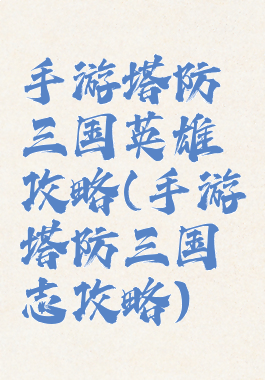 手游塔防
三国英雄
攻略(手游
塔防三国
志攻略)